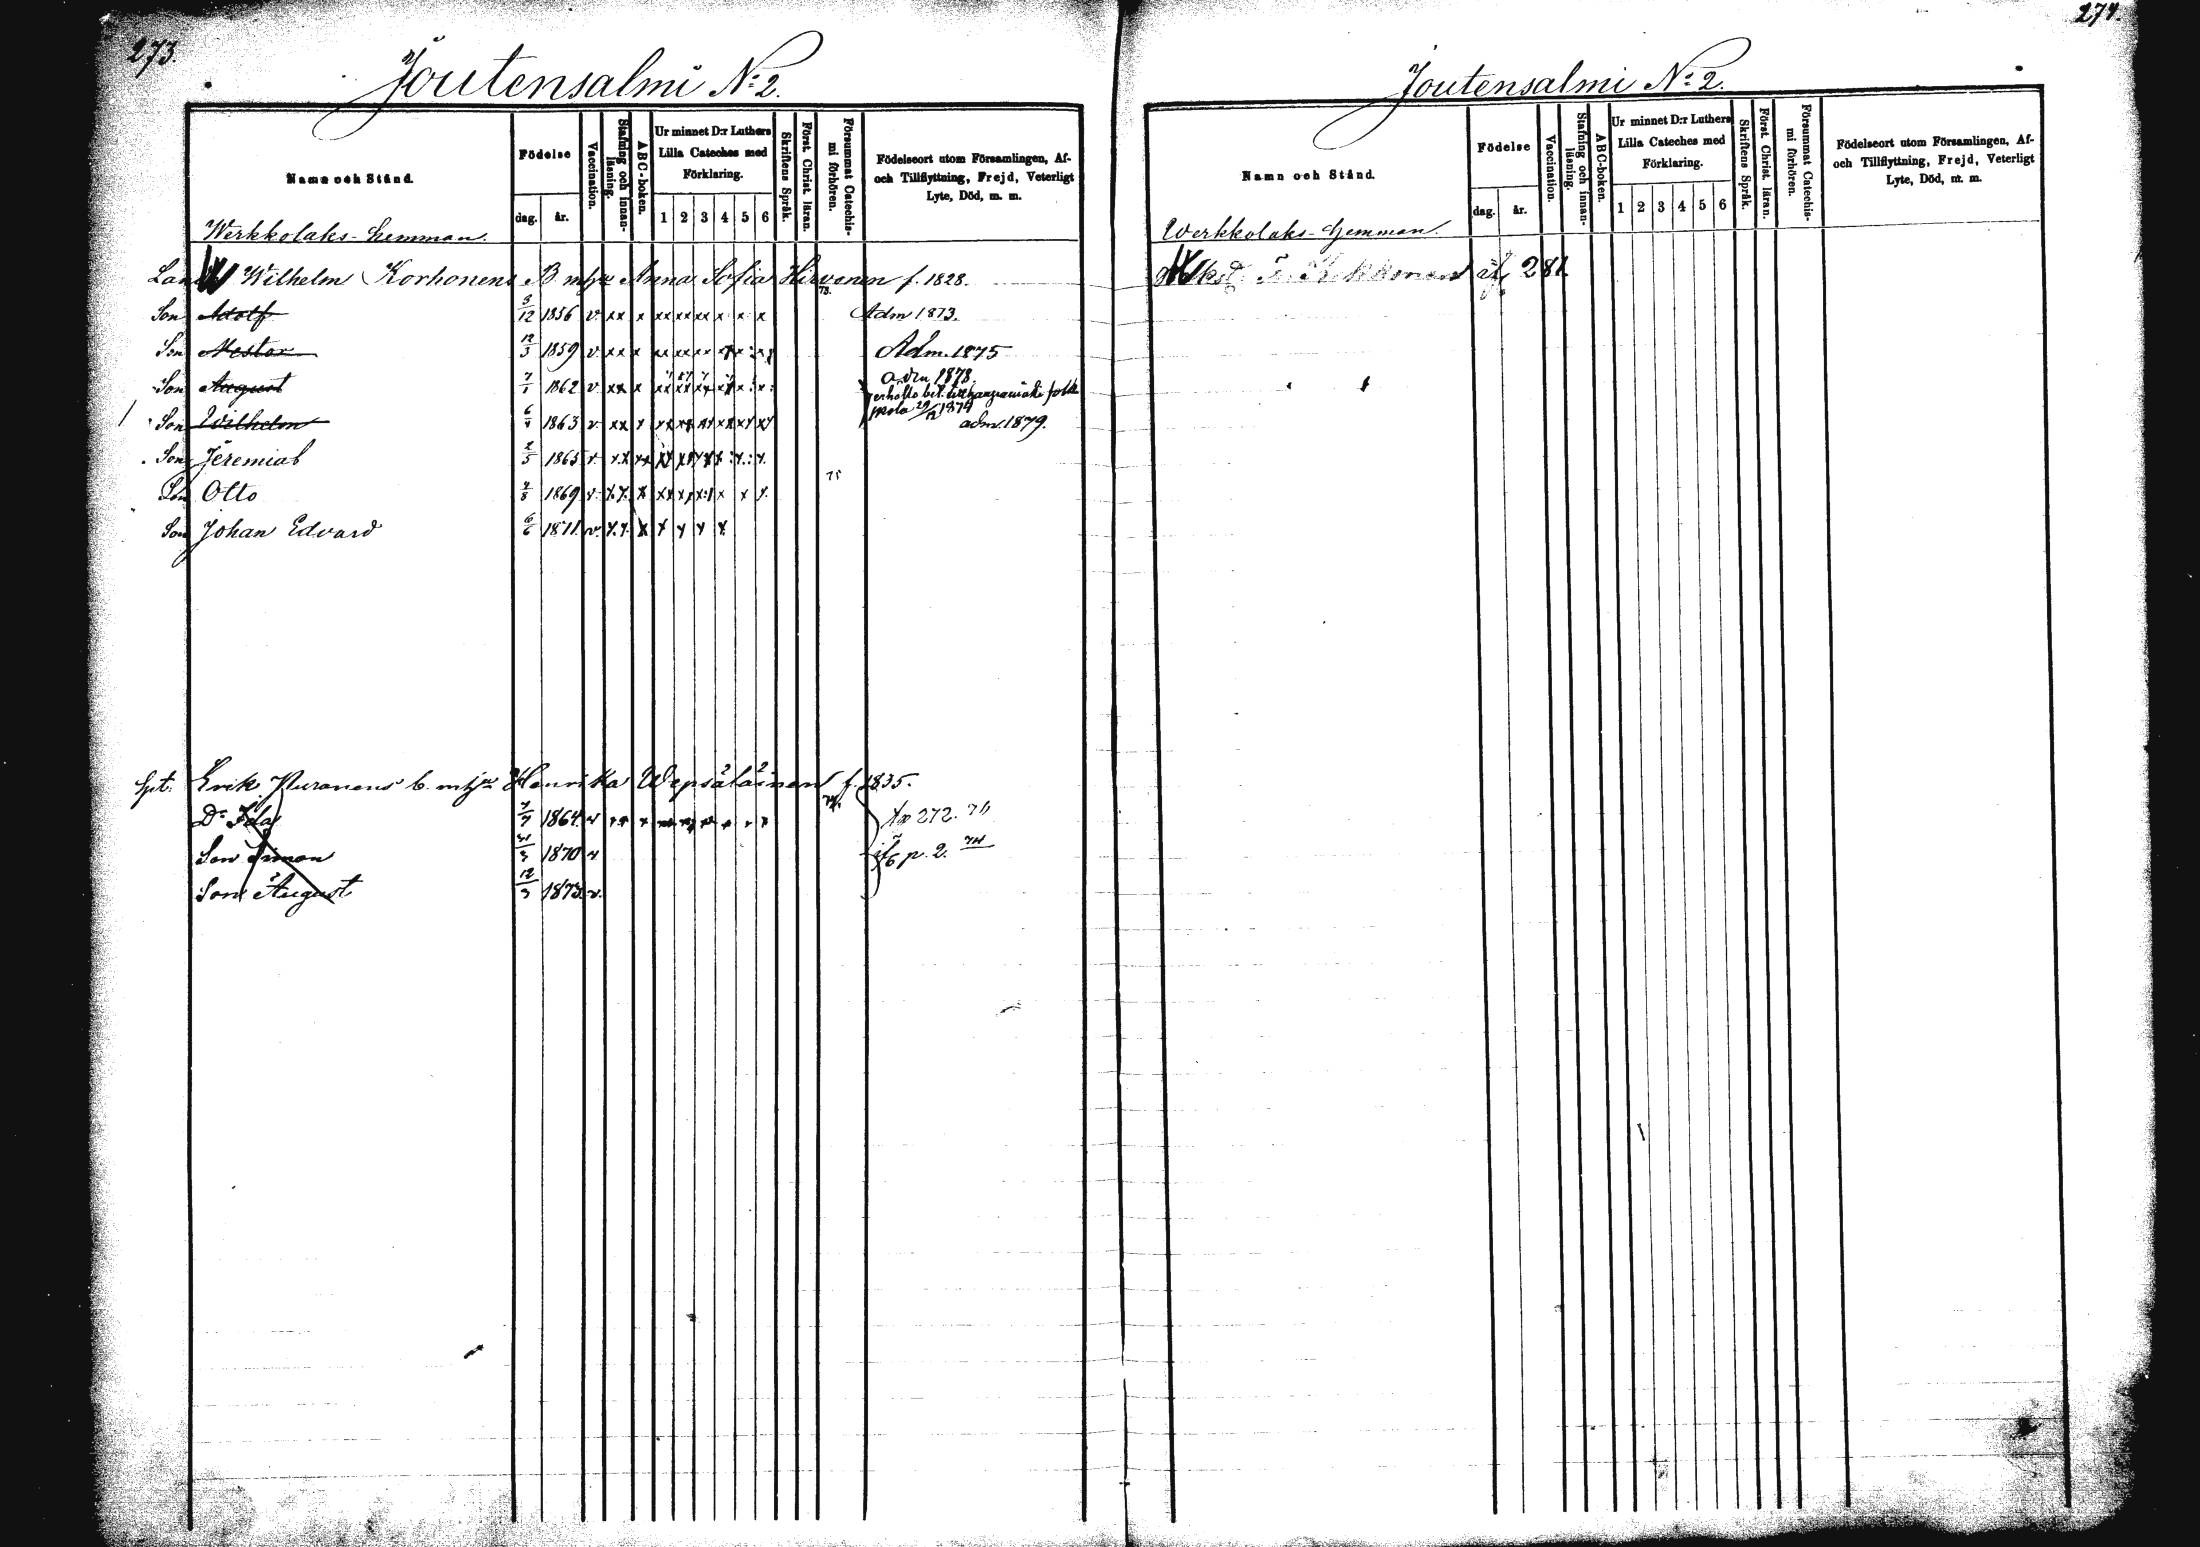 273.
Joutensalmi N:o 2.
Namn och Stånd.
Födelse
dag.
år.
Vaccination.
Stafning och innan-
läsning.
ABC-boken.
Ur minnet D:r Luthers
Lilla Cateches med
Förklaring.
1 2 3 4 5 6
Skriftens Språk.
Först. Christ. läran.
Försummat Catechis-
mi förhören.
Födelseort utom Församlingen, Af-
och Tillflyttning, Frejd, Veterligt
Lyte, Död, m. m.
Werkkolaks-hemman.
Wilhelm Korhonens B. Anna Sofia Hirvonen f. 1828.
73.
Son Adolf 3/12 1856 v xx x xx xx xx x x x Adm 1873.
Son Nestor 12/3 1859 v xx x Adm. 1875
Son August 7/1 1862 v xx x 1878
erhöllo bet.
skola 29/12 1874
Son Wilhelm 6/4 1863 v xx x adm. 1879.
Son Jeremias 2/5 1865 v
75
Son Otto 4/8 1869 v x x x
Son Johan Edvard 6/6 1871 v x x x x y y x
Spt. Erik Puranens b. Henrika Wepsäläinen f. 1835.
74.
D:r Ida 7/7 1864 v 272. 74
Son Simon 21/3 1870 v p. 2. 74
Son August 12/3 1873 v.
274.
Joutensalmi N:o 2.
Namn och Stånd.
Födelse
dag.
år.
Vaccination.
Stafning och innan-
läsning.
ABC-boken.
Ur minnet D:r Luthers
Lilla Cateches med
Förklaring.
1 2 3 4 5 6
Skriftens Språk.
Först. Christ. läran.
Försummat Catechis-
mi förhören.
Födelseort utom Församlingen, Af-
och Tillflyttning, Frejd, Veterligt
Lyte, Död, m. m.
Werkkolaks-hemman.
281.